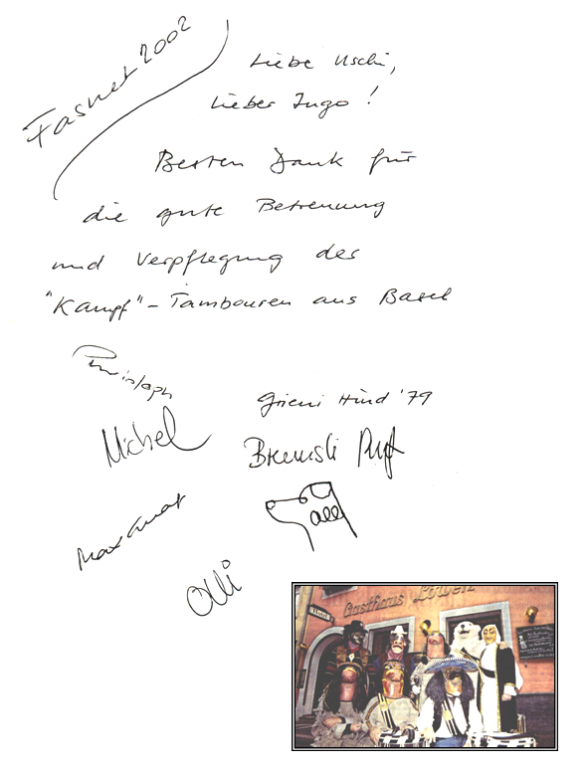 Fasnet 2002
Liebe Uschi,
Lieber Ingo!
Besten Dank für
die gute Betreuung
und Verpflegung der
"Kampf"-Tambouren aus Basel
Christoph
Grieni Hünd '79
Michel
Max
Olli
Gasthaus Löwen